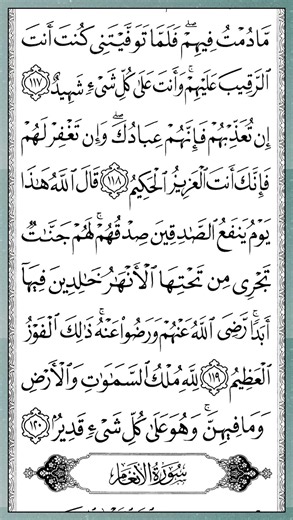 مَّا دُمْتُ فِيهِمْۖ فَلَمَّا تَوَفَّيْتَنِى كُنتَ أَنتَ
ٱلرَّقِيبَ عَلَيْهِمْۚ وَأَنتَ عَلَىٰ كُلِّ شَىْءٍ شَهِيدٌ ١١٧
إِن تُعَذِّبْهُمْ فَإِنَّهُمْ عِبَادُكَۖ وَإِن تَغْفِرْ لَهُمْ
فَإِنَّكَ أَنتَ ٱلْعَزِيزُ ٱلْحَكِيمُ ١١٨ قَالَ ٱللَّهُ هَٰذَا
يَوْمُ يَنفَعُ ٱلصَّٰدِقِينَ صِدْقُهُمْۚ لَهُمْ جَنَّٰتٌ
تَجْرِى مِن تَحْتِهَا ٱلْأَنْهَٰرُ خَٰلِدِينَ فِيهَآ
أَبَدًاۚ رَّضِىَ ٱللَّهُ عَنْهُمْ وَرَضُوا۟ عَنْهُۚ ذَٰلِكَ ٱلْفَوْزُ
ٱلْعَظِيمُ ١١٩ لِلَّهِ مُلْكُ ٱلسَّمَٰوَٰتِ وَٱلْأَرْضِ
وَمَا فِيهِنَّۚ وَهُوَ عَلَىٰ كُلِّ شَىْءٍ قَدِيرٌۢ ١٢٠
سُورَةُ الأَنْعَام